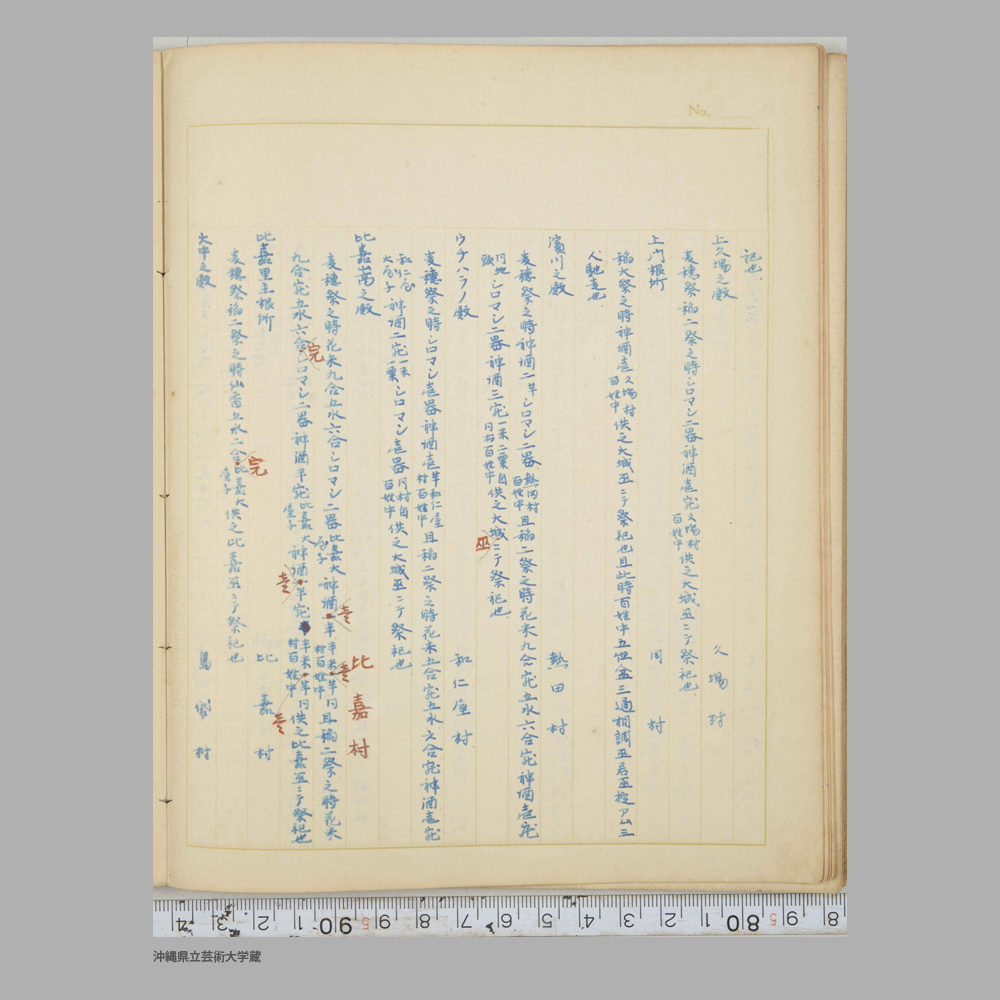 No.
祀也
上久場之殿 久場村
麦穂祭稲二祭之時シロマシ二器神酒壱宛久場村百姓中供之大城巫ニテ祭祀也
上門根所 同村
稲大祭之時神酒壱久場村百姓中供之大城巫ニテ祭祀也且此時百姓中五
人馳走也
濱川之殿 熱田村
麦穂祭之時神酒二半シロマシ二器熱田村百姓中且稲二祭之時花米九合宛五水六合宛神酒壱宛
同地頭シロマシ二器神酒三宛一米二粟自同村百姓中供之大城巫ニテ祭祀也
ウチハラノ殿 和仁屋村
麦穂祭之時シロマシ壱器神酒壱半和仁屋村百姓中且稲二祭之時花米五合宛五水六合宛神酒壱宛
和仁屋大屋子神酒二宛一米一粟シロマシ壱器同村百姓中自供之大城巫ニテ祭祀也
比嘉嵩之殿 比嘉村
麦穂祭之時花米九合五水六合シロマシ二器比嘉大屋子神酒半壱半米半芋村百姓中同且稲二祭之時花米
九合宛五水六合宛シロマシ二器神酒半宛比嘉大屋子神酒半壱宛半米半芋村百姓中同供之比嘉巫ニテ祭祀也
比嘉里主根所 比嘉村
麦穂祭稲二祭之時仙香五水二合完比嘉大屋子供之比嘉巫ニテ祭祀也
大中之殿 島袋村
4 3 2 1 90 9 8 7 6 5 4 3 2 1 80 9 8
沖縄県立芸術大学蔵